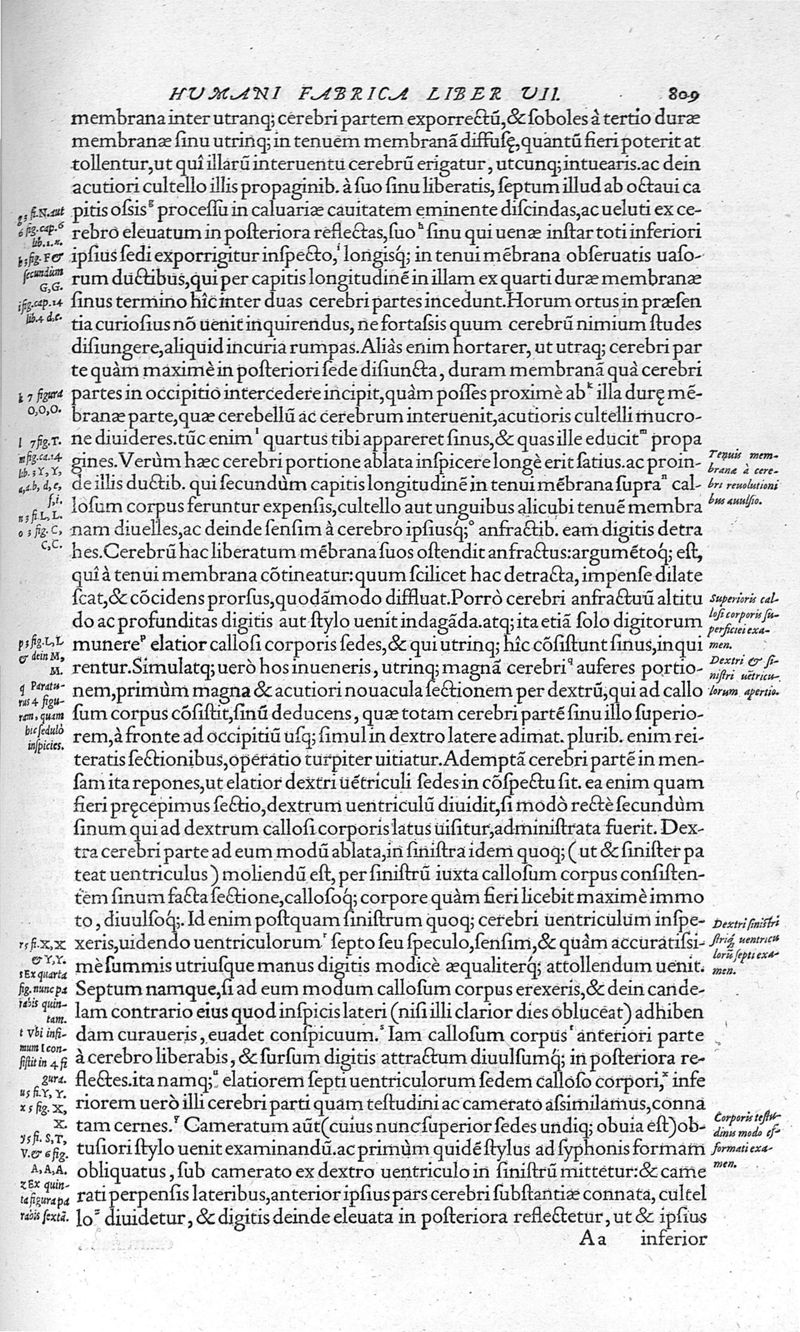 HUMANI FABRICA LIBER VII. 809
membrana inter utranq; cerebri partem exporrectũ, & soboles à tertio duræ
membranæ sinu utrinq; in tenuem membranã diffusę, quantũ fieri poterit at
tollentur, ut quî illarũ interuentu cerebrũ erigatur, utcunq; intuearis. ac dein
acutiori cultello illis propaginib. à suo sinu liberatis, septum illud ab octaui ca
pitis ossis g processu in caluariæ cauitatem eminente discindas, ac ueluti ex ce-
rebro eleuatum in posteriora reflectas, suo h sinu qui uenæ instar toti inferiori
ipsius sedi exporrigitur inspecto, i longisq́; in tenui mẽbrana obseruatis uaso-
rum ductibus, qui per capitis longitudinẽ in illam ex quarti duræ membranæ
sinus termino hîc inter duas cerebri partes incedunt. Horum ortus in præsen
tia curiosius nõ uenit inquirendus, ne fortassis quum cerebrũ nimium studes
disiungere, aliquid incuria rumpas. Aliàs enim hortarer, ut utraq; cerebri par
te quàm maximè in posteriori sede disiuncta, duram membranã quà cerebri
partes in occipitio intercedere incipit, quàm posses proximè ab k illa durę mẽ-
branæ parte, quæ cerebellũ ac cerebrum interuenit, acutioris cultelli mucro-
ne diuideres. tũc enim l quartus tibi appareret sinus, & quas ille educit m propa
gines. Verùm hæc cerebri portione ablata inspicere longè erit satius. ac proin-
de illis ductib. qui secundùm capitis longitudinẽ in tenui mẽbrana supra n cal-
losum corpus feruntur expensis, cultello aut unguibus alicubi tenuẽ membra
nam diuelles, ac deinde sensim à cerebro ipsiusq́; o anfractib. eam digitis detra
hes. Cerebrũ hac liberatum mẽbrana suos ostendit anfractus: argumẽtoq́; est,
quî à tenui membrana cõtineatur: quum scilicet hac detracta, impense dilate
scat, & cõcidens prorsus, quodãmodo diffluat. Porrò cerebri anfractuũ altitu
do ac profunditas digitis aut stylo uenit indagãda. atq; ita etiã solo digitorum
munere p elatior callosi corporis sedes, & qui utrinq; hîc cõsistunt sinus, inqui
rentur. Simulatq; uerò hos inueneris, utrinq; magnã cerebri q auferes portio-
nem, primùm magna & acutiori nouacula sectionem per dextrũ, qui ad callo
sum corpus cõsistit, sinũ deducens, quæ totam cerebri partẽ sinu illo superio-
rem, à fronte ad occipitiũ usq; simul in dextro latere adimat. plurib. enim rei-
teratis sectionibus, operatio turpiter uitiatur. Ademptã cerebri partẽ in men-
sam ita repones, ut elatior dextri uẽtriculi sedes in cõspectu sit. ea enim quam
fieri pręcepimus sectio, dextrum uentriculũ diuidit, si modò rectè secundùm
sinum qui ad dextrum callosi corporis latus uisitur, administrata fuerit. Dex-
tra cerebri parte ad eum modũ ablata, in sinistra idem quoq; (ut & sinister pa
teat uentriculus) moliendũ est, per sinistrũ iuxta callosum corpus consisten-
tem sinum facta sectione, callosoq́; corpore quàm fieri licebit maximè immo
to, diuulsoq́;. Id enim postquam sinistrum quoq; cerebri uentriculum inspe-
xeris, uidendo uentriculorum r septo seu speculo, sensim, & quàm accuratissi-
mè summis utriusque manus digitis modicè æqualiterq́; attollendum uenit.
Septum namque, si ad eum modum callosum corpus erexeris, & dein cande-
lam contrario eius quod inspicis lateri (nisi illi clarior dies obluceat) adhiben
dam curaueris, euadet conspicuum. s Iam callosum corpus t anteriori parte
à cerebro liberabis, & sursum digitis attractum diuulsumq́; in posteriora re-
flectes. ita namq; u elatiorem septi uentriculorum sedem calloso corpori, x infe
riorem uerò illi cerebri parti quam testudini ac camerato assimilamus, conna
tam cernes. y Cameratum aũt (cuius nunc superior sedes undiq; obuia est) ob-
tusiori stylo uenit examinandũ. ac primùm quidẽ stylus ad syphonis formam
obliquatus, sub camerato ex dextro uentriculo in sinistrũ mittetur: & came
rati perpensis lateribus, anterior ipsius pars cerebri substantiæ connata, cultel
lo z diuidetur, & digitis deinde eleuata in posteriora reflectetur, ut & ipsius
Aa inferior
g 3 fi. N. aut
6 fig. cap. 6
lib. 1. x.
h 5 fig. F &
secundùm
G, G.
i fig. cap. 14
lib. 4 d, e.
k 7 figura
O, O, O.
l 7 fig. T.
m fig. ca. 14
lib. 3 Y, Y,
a, a. b, d, e,
f, i.
n 3 fi. L, L.
o 3 fig. C,
C, C.
p 3 fig. L, L
& dein M,
M.
q Paratu-
rus 4 figu-
ram, quam
hic sedulò
inspicies.
r 5 fi. X, X
& Y, Y.
s Ex quarta
fig. nunc pa
rabis quin-
tam.
t Vbi infi-
mum I con-
sistit in 4 fi
gura.
u 5 fi. Y, Y.
x 5 fig. X,
X.
y 5 fi. S, T,
V. & 6 fig.
A, A, A.
z Ex quin-
ta figura pa
rabis sextã.
Tenuis mem-
brana à cere-
bri reuolutioni
bus auulsio.
Superioris cal-
losi corporis su-
perficiei exa-
men.
Dextri & si-
nistri uẽtricu-
lorum apertio.
Dextri sinistri
striq́; uentricu
lorũ septi exa-
men.
Corporis testu-
dinis modo ef-
formati exa-
men.